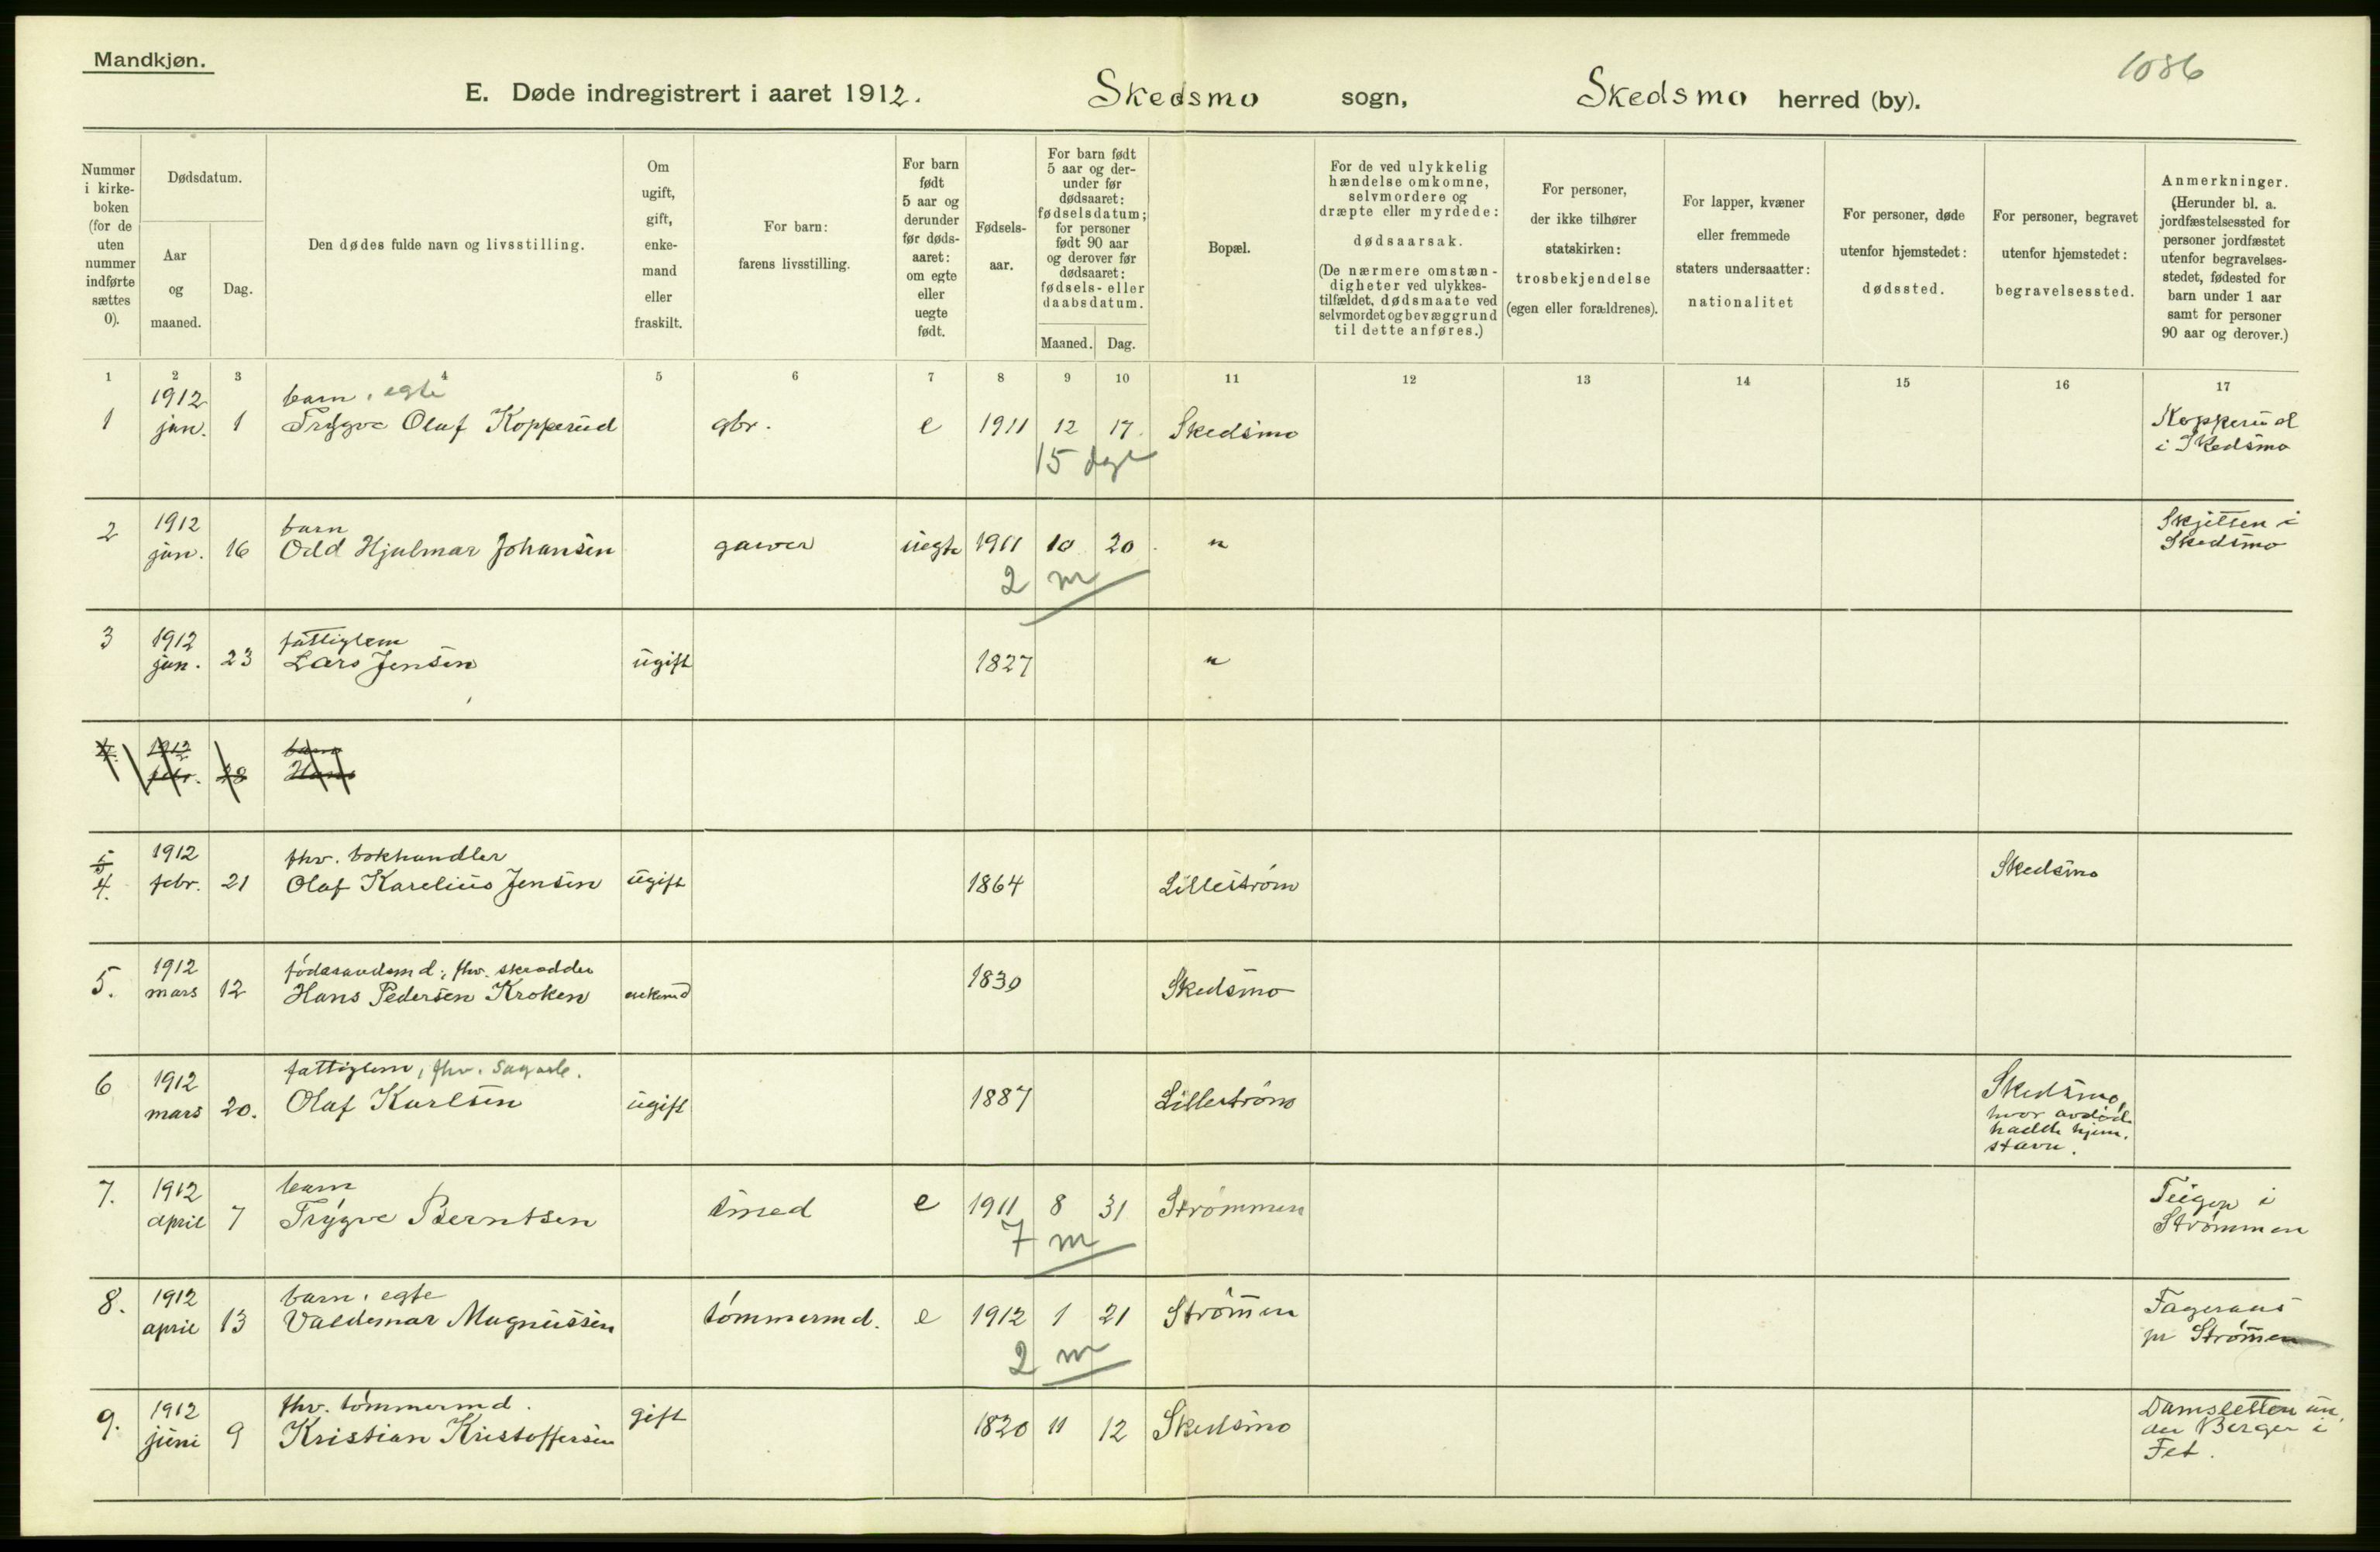 Mandkjøn.
1086
E. Døde indregistrert i aaret 1912. Skedsmo sogn, Skedsmo herred (by).
Nummer i kirke- boken (for de uten nummer indførte sættes 0).
Dødsdatum.
Aar og maaned.
Dag.
Den dødes fulde navn og livsstilling.
Om ugift, gift, enke- mand eller fraskilt.
For barn: farens livsstilling.
For barn født 5 aar og derunder før døds- aaret: om egte eller uegte født.
Fødsels- aar.
For barn født 5 aar og der- under før dødsaaret: fødselsdatum; for personer født 90 aar og derover før dødsaaret: fødsels- eller daabsdatum.
Maaned. Dag.
Bopæl.
For de ved ulykkelig hændelse omkomne, selvmordere og dræpte eller myrdede: dødsaarsak. (De nærmere omstæn- digheter ved ulykkes- tilfældet, dødsmaate ved selvmordet og bevæggrund til dette anføres.)
For personer, der ikke tilhører statskirken: trosbekjendelse (egen eller forældrenes).
For lapper, kvæner eller fremmede staters undersaatter: nationalitet
For personer, døde utenfor hjemstedet: dødssted.
For personer, begravet utenfor hjemstedet: begravelsessted.
Anmerkninger. (Herunder bl. a. jordfæstelsessted for personer jordfæstet utenfor begravelses- stedet, fødested for barn under 1 aar samt for personer 90 aar og derover.)
1 2 3 4 5 6 7 8 9 10 11 12 13 14 15 16 17
1912 barn, egte
1 jan. 1 Trygve Olaf Kopperud gbr. e 1911 12 17. Skedsmo Kopperud
i Skedsmo
15 dage
1912 barn
2 jan. 16 Odd Hjalmar Johansen garver uegte 1911 10 20. " Skjetten i
Skedsmo
2 m
1912 fattiglem
3 jan. 23 Lars Jensen ugift 1827 "
4. 1912 barn
febr. 28 Hans
5 1912 fhv. bokhandler
4. febr. 21 Olaf Karelius Jensen ugift 1864 Lillestrøm Skedsmo
1912 føderaadsmd., fhv. skrædder
5. mars 12 Hans Pedersen Kroken enkemd 1830 Skedsmo
1912 fattiglem, fhv. Sagarb.
6 mars 20. Olaf Karlsen ugift 1887 Lillestrøm Skedsmo,
hvor avdøde
hadde hjem.
stavn.
1912 barn
7. april 7 Trygve Berntsen smed e 1911 8 31 Strømmen Teigen i
Strømmen
7 m
1912 barn, egte
8. april 13 Valdemar Magnussen tømmermd. e 1912 1 21 Strømen Fageraas
pr Strømen
2 m
1912 fhv. tømmermd.
9. juni 9 Kristian Kristoffersen gift 1820 11 12 Skedsmo Damsletten un,
der Berger i
Fet.